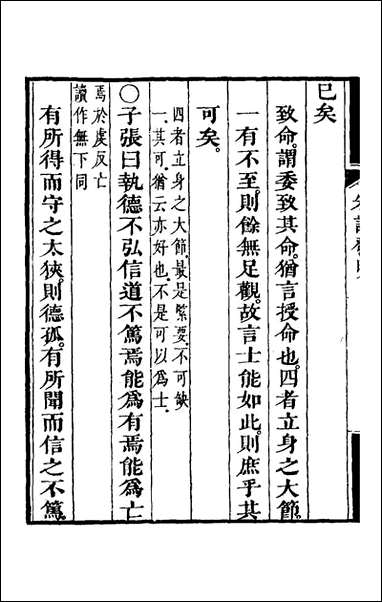 已矣
致命。謂委致其命。猶言授命也。四者立身之大節。
一有不至。則餘無足觀。故言士能如此。則庶乎其
可矣。
四者立身之大節。最是緊要。不可缺
一。其可。猶云亦好也。不是可以為士。
○子張曰執德不弘信道不篤焉能為有焉能為亡
焉於虔反亡
讀作無下同
有所得而守之太狹。則德孤。有所聞而信之不篤。